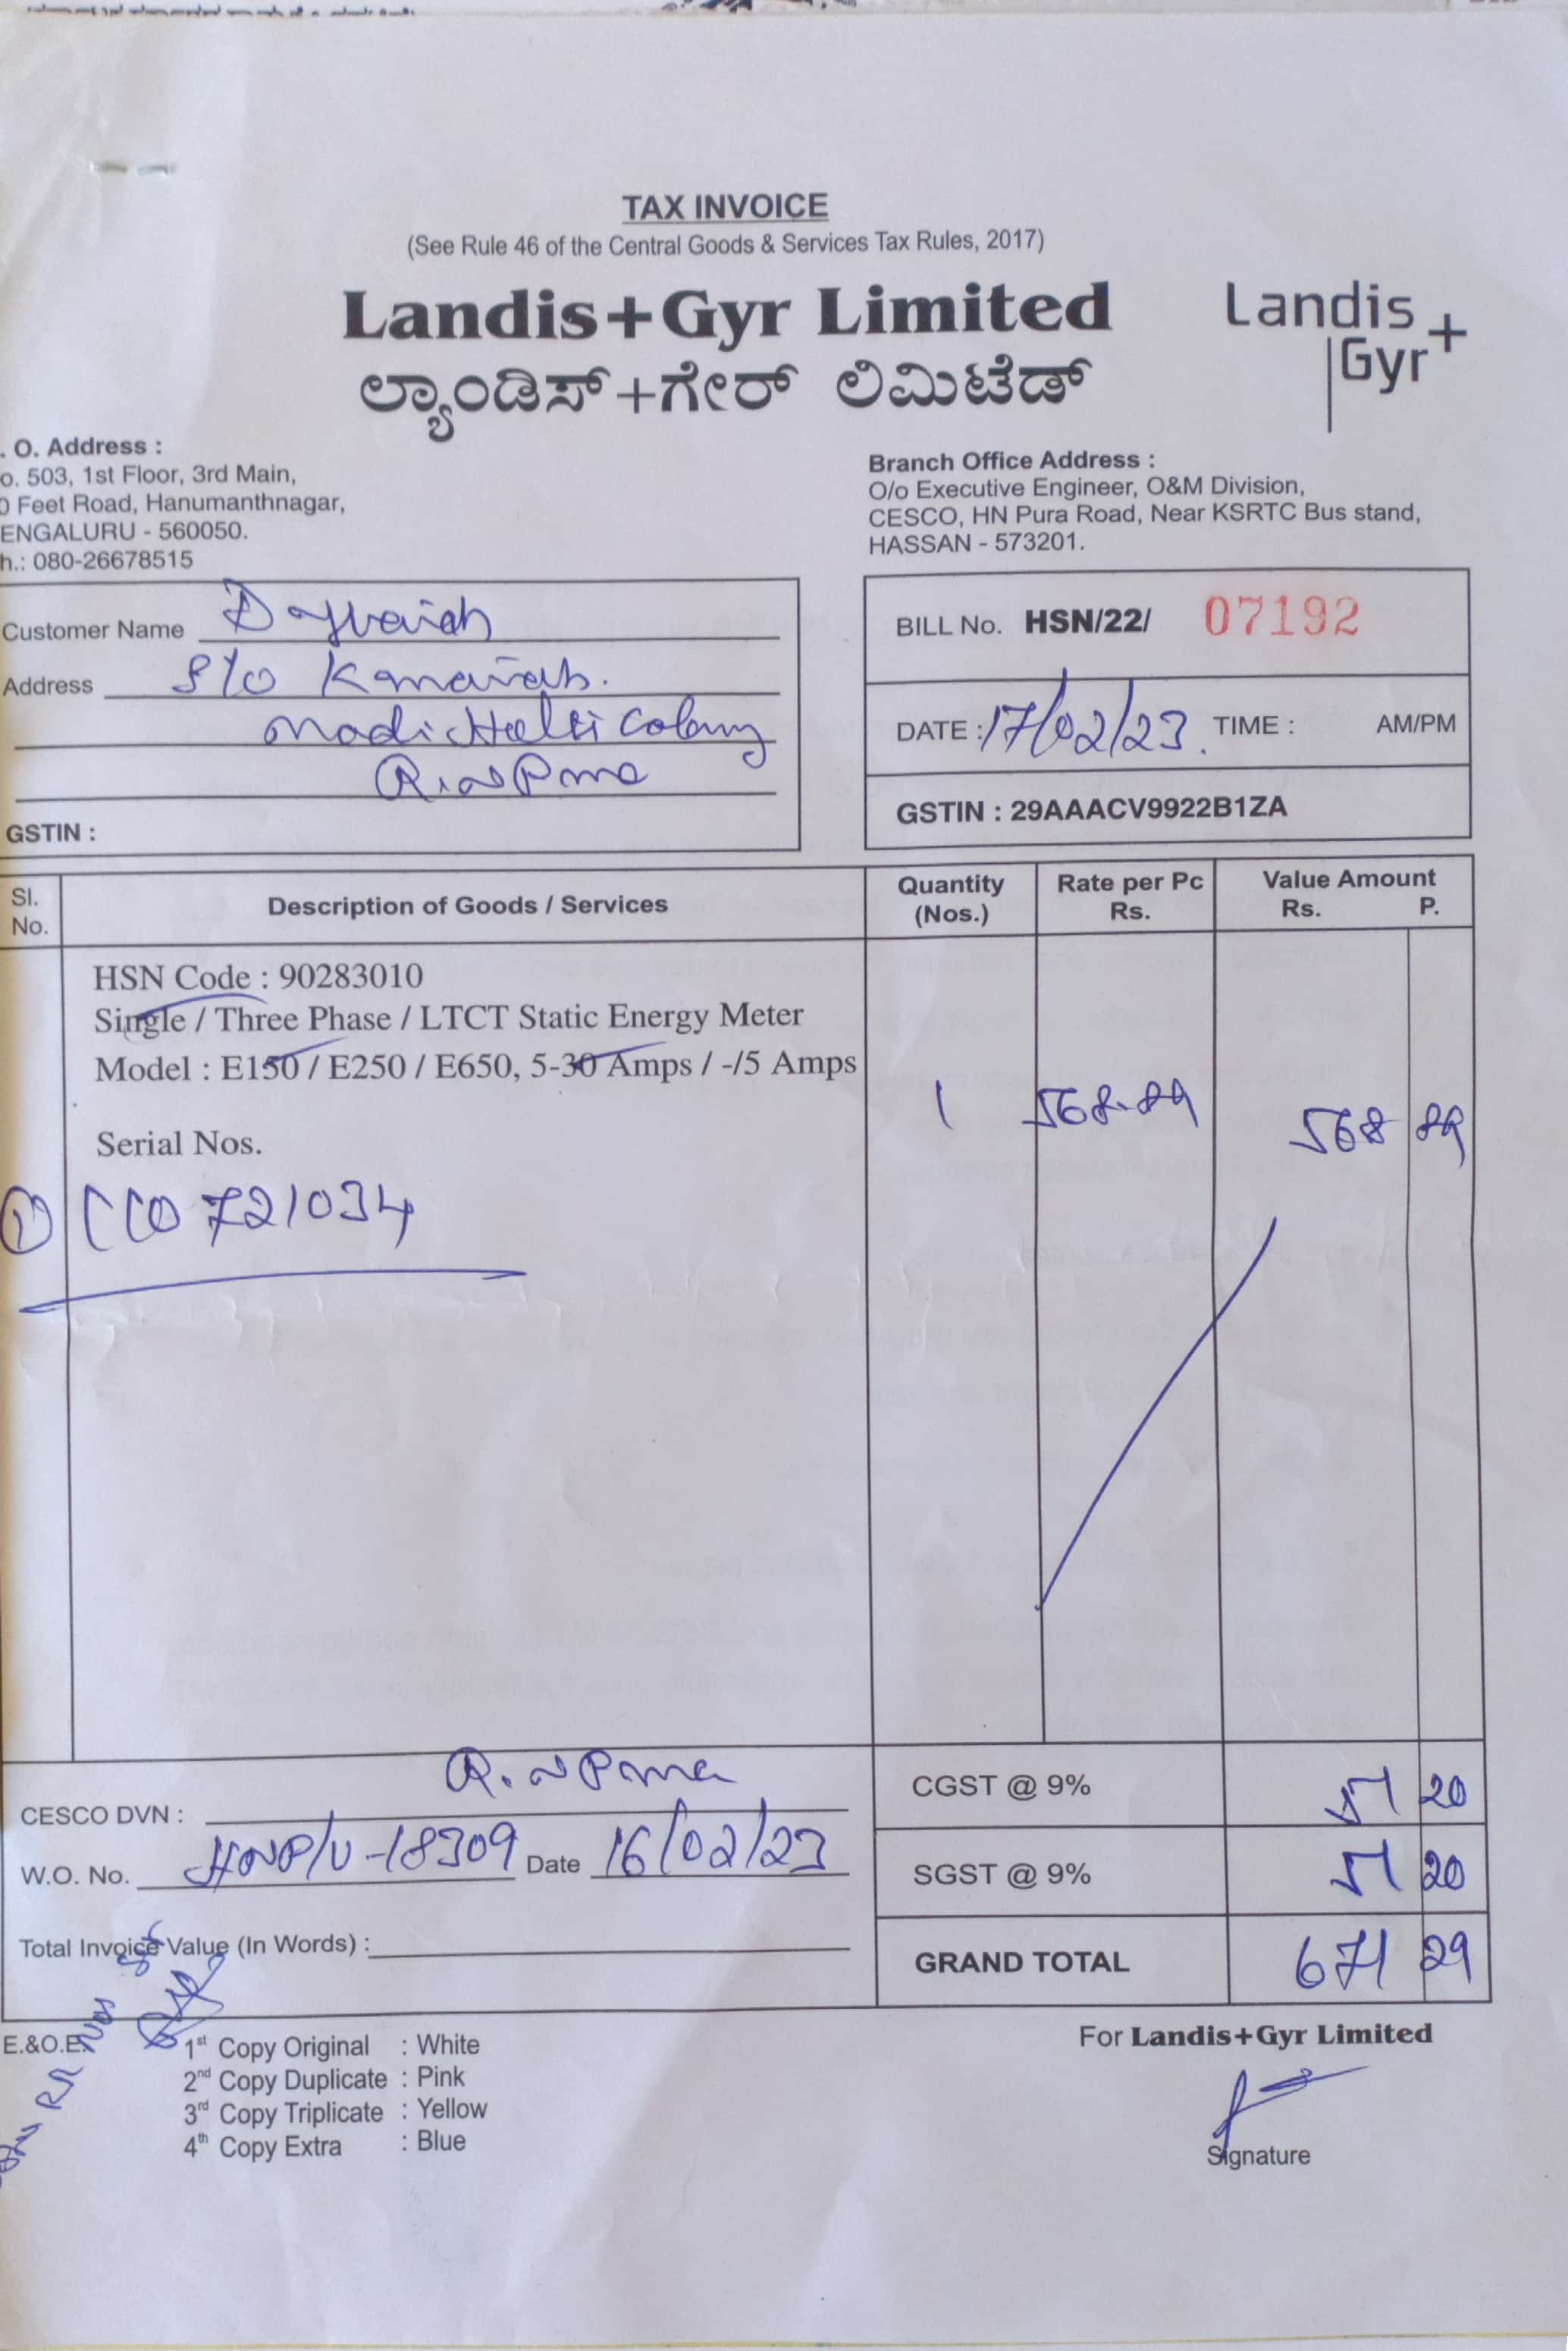 TAX INVOICE
(See Rule 46 of the Central Goods & Services Tax Rules, 2017)
Landis+Gyr Limited
ಲ್ಯಾಂಡಿಸ್+ಗೇರ್ ಲಿಮಿಟೆಡ್
Landis
Gyr+
. O. Address :
o. 503, 1st Floor, 3rd Main,
0 Feet Road, Hanumanthnagar,
ENGALURU - 560050.
h.: 080-26678515
Branch Office Address :
O/o Executive Engineer, O&M Division,
CESCO, HN Pura Road, Near KSRTC Bus stand,
HASSAN - 573201.
Customer Name
Address S/o
Colony
GSTIN :
BILL No. HSN/22/ 07192
DATE : 17/02/23. TIME : AM/PM
GSTIN : 29AAACV9922B1ZA
Sl. No. Description of Goods / Services Quantity (Nos.) Rate per Pc Rs. Value Amount Rs. P.
HSN Code : 90283010
Single / Three Phase / LTCT Static Energy Meter
Model : E150 / E250 / E650, 5-30 Amps / -/5 Amps
1 568.89 568 89
Serial Nos.
1 CC0721034
CESCO DVN :
CGST @ 9% 51 20
W.O. No. Date 16/02/23
SGST @ 9% 51 20
Total Invoice Value (In Words) :
GRAND TOTAL 671 29
E.&O.E.
1st Copy Original : White
2nd Copy Duplicate : Pink
3rd Copy Triplicate : Yellow
4th Copy Extra : Blue
For Landis+Gyr Limited
Signature